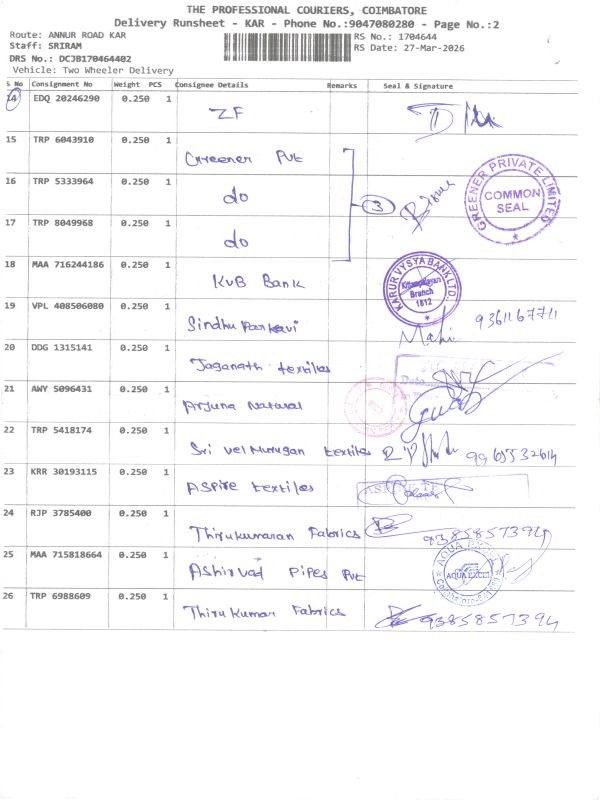 THE PROFESSIONAL COURIERS, COIMBATORE
Delivery Runsheet - KAR - Phone No.:9047080280 - Page No.:2
Route: ANNUR ROAD KAR
RS No.: 1704644
Staff: SRIRAM
RS Date: 27-Mar-2026
DRS No.: DCJB170464402
Vehicle: Two Wheeler Delivery
S No Consignment No Weight PCS Consignee Details Remarks Seal & Signature
14 EDQ 20246290 0.250 1 ZF
15 TRP 6043910 0.250 1 Greener Pvt
16 TRP 5333964 0.250 1 do 3 GREENER PRIVATE LIMITED COMMON SEAL
17 TRP 8049968 0.250 1 do
18 MAA 716244186 0.250 1 KVB Bank KARUR VYSYA BANK LTD. Branch 1812
19 VPL 408506080 0.250 1 Sindhu Parkavi Mahi
20 DDG 1315141 0.250 1 Jaganath textiles Date
21 AWY 5096431 0.250 1 Arjuna Natural
22 TRP 5418174 0.250 1 Sri vel Murugan textiles
23 KRR 30193115 0.250 1 ASPire textiles
24 RJP 3785400 0.250 1 Thirukumaran Fabrics 9385857394
25 MAA 715818664 0.250 1 Ashirvad Pipes Pvt AQUA EXCEL
26 TRP 6988609 0.250 1 Thirukumar Fabrics 9385857394